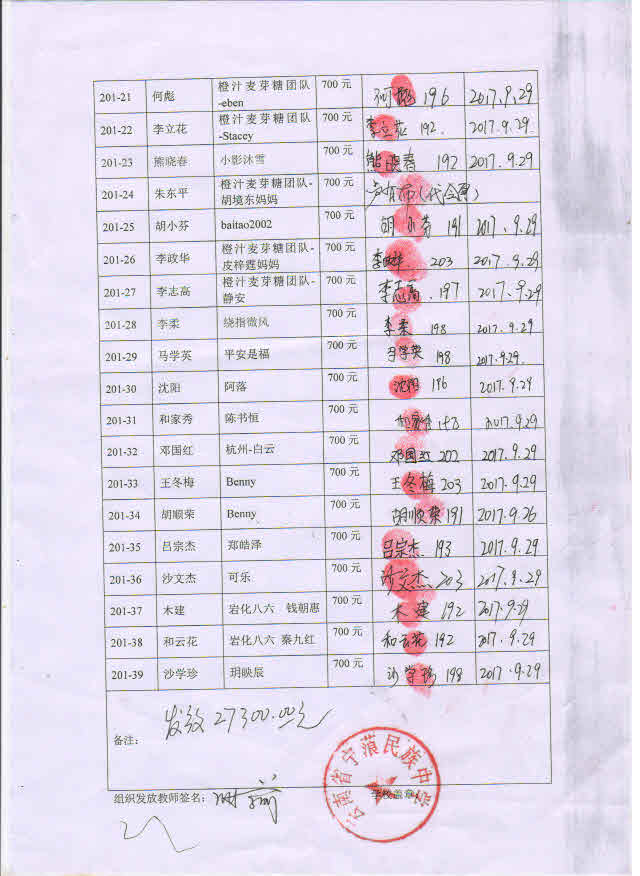 201-21 何彪 橙汁麦芽糖团队 700 元 何彪 196 2017.9.29
-eben
201-22 李立花 橙汁麦芽糖团队 700 元 李立花 192. 2017.9.29.
-Stacey
201-23 熊晓春 小影沐雪 700 元 熊晓春 192 2017.9.29
201-24 朱东平 橙汁麦芽糖团队- 700 元
胡境东妈妈
201-25 胡小芬 baitao2002 700 元 胡小芬 191 2017.9.29
201-26 李政华 橙汁麦芽糖团队- 700 元 李政华 203 2017.9.29
皮梓霆妈妈
201-27 李志高 橙汁麦芽糖团队- 700 元 李志高.197 2017.9.29
静安
201-28 李柔 绕指微风 700 元 李柔 198 2017.9.29
201-29 马学英 平安是福 700 元 马学英 198 2017.9.29.
201-30 沈阳 阿落 700 元 沈阳 196 2017.9.29
201-31 和家秀 陈书恒 700 元 和家秀 2017.9.29
201-32 邓国红 杭州-白云 700 元 邓国红 202 2017.9.29
201-33 王冬梅 Benny 700 元 王冬梅 203 2017.9.29
201-34 胡顺荣 Benny 700 元 胡顺荣 191 2017.9.26
201-35 吕宗杰 郑皓泽 700 元 吕宗杰 193 2017.9.29
201-36 沙文杰 可乐 700 元 沙文杰 203 2017.9.29
201-37 木建 岩化八六 钱朝惠 700 元 木建 192 2017.9.29
201-38 和云花 岩化八六 秦九红 700 元 和云花 192 2017.9.29
201-39 沙学珍 玥映辰 700 元 沙学珍 198 2017.9.29
发放 27300.00元
备注:
云南省宁蒗民族中学
组织发放教师签名: 学校盖章: